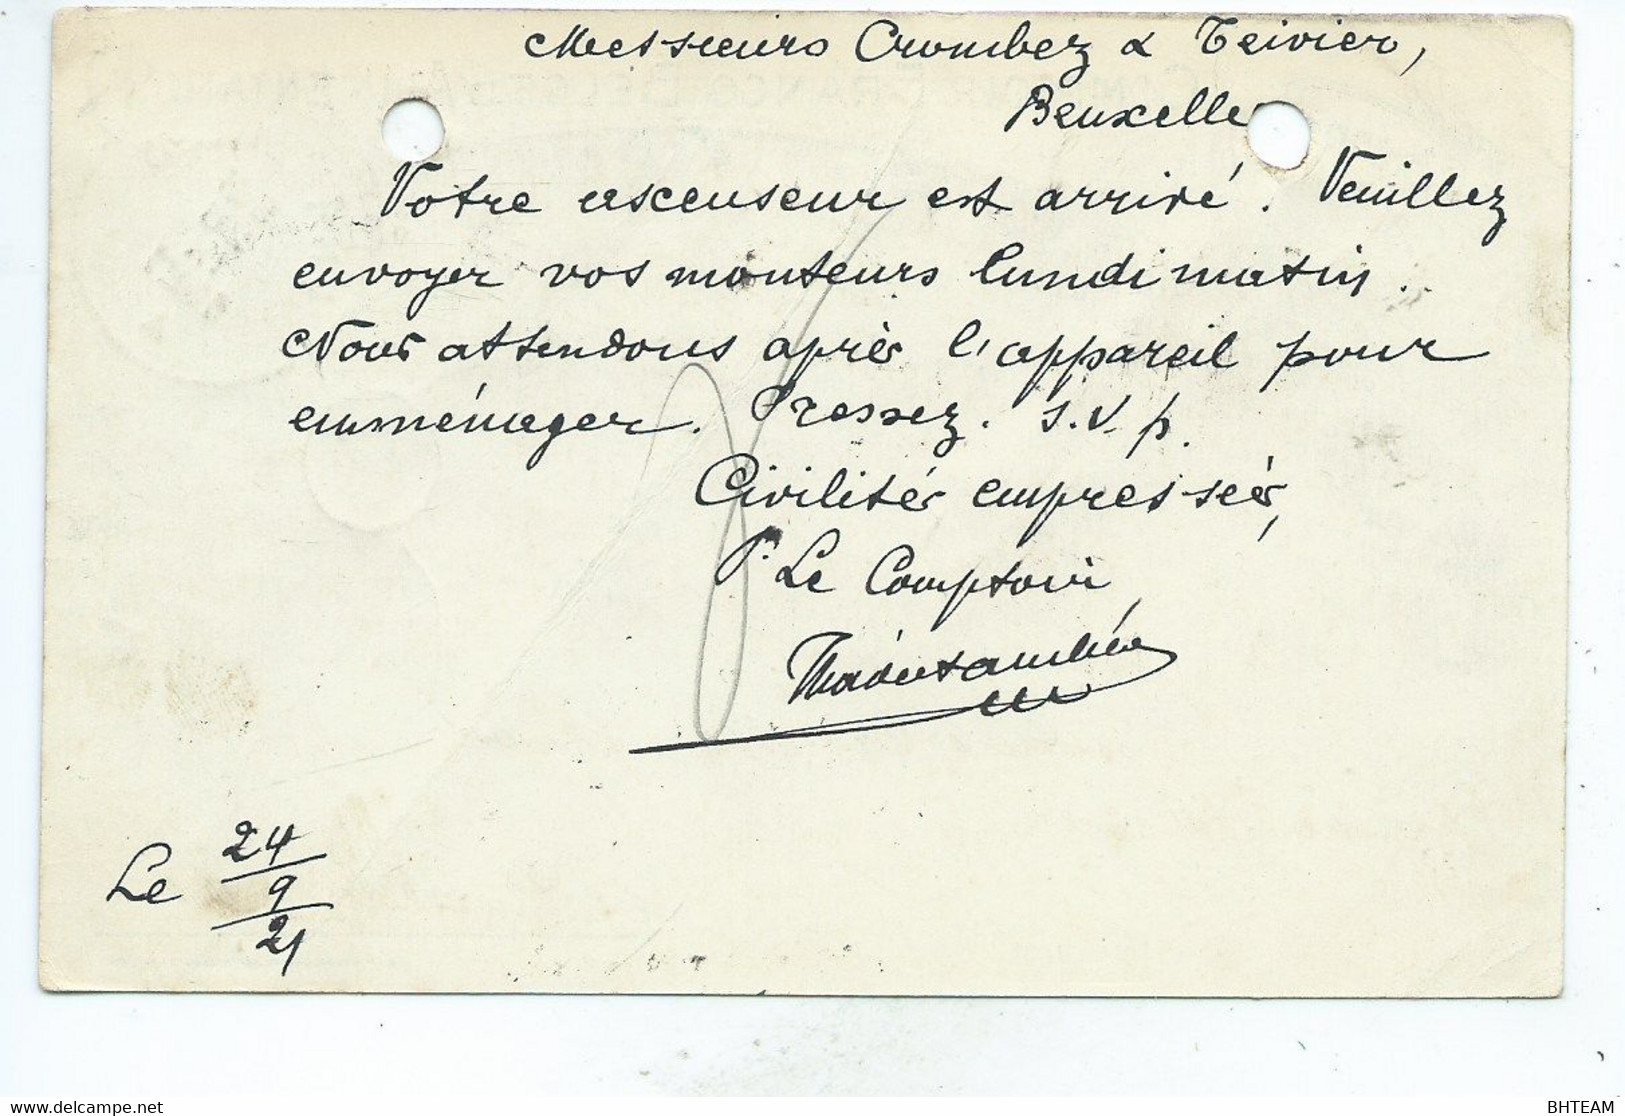 Messieurs Crombez & Teivier,
Bruxelles
Votre ascenseur est arrivé. Veuillez
envoyer vos monteurs lundi matin.
Nous attendons après l'appareil pour
emménager. Pressez. s.v.p.
Civilités empressées,
P. Le Comptoir
Le 24/9/21
BHTEAM